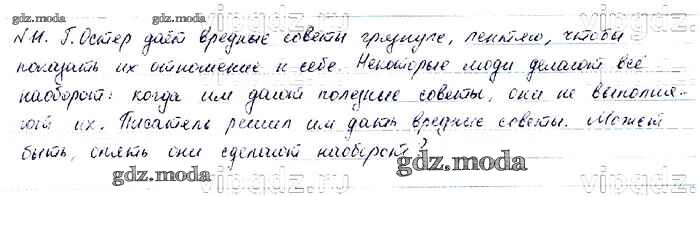 N 11. Г. Остер даёт вредные советы грязнуле, лентяю, чтобы
показать их отношение к себе. Некоторые люди делают всё
наоборот: когда им дают полезные советы, они не выполня-
ют их. Писатель решил им дать вредные советы. Может
быть, опять они сделают наоборот?
gdz.moda
gdz.moda
gdz.moda
gdz.moda
vipgdz.moda
vipgdz.moda